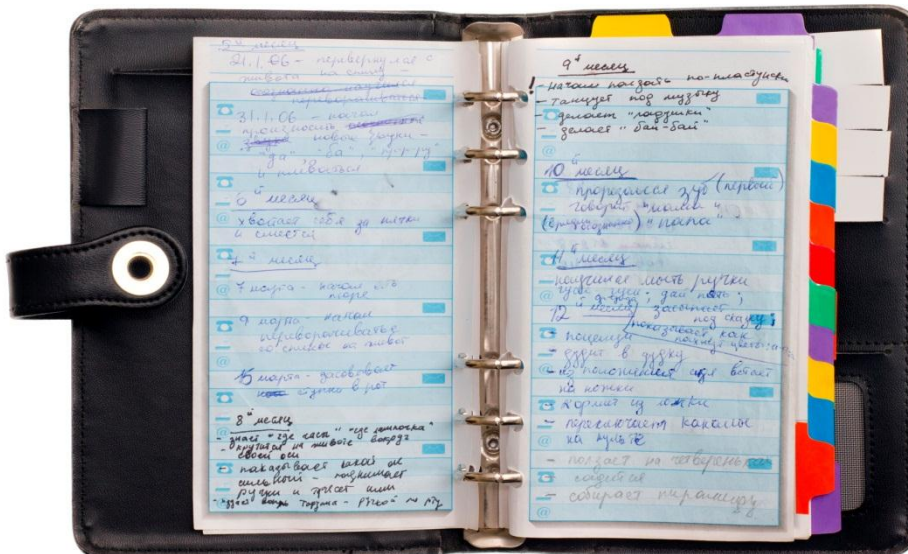 5й месяц
21.1.06 - перевернулся с
живота на спину -
31.1.06 - начал
произносить
новые звуки -
"да" "ба",
и плеваться
6й месяц
хватает себя за пятки
и смеется
7й месяц
7 марта - начал есть
пюре
9 марта - начал
переворачиваться
со спины на живот
15 марта - засовывает
в рот
8й месяц
- знает "где часы" "где лампочка"
- крутится на животе вокруг
своей оси
- показывает какой он
сильный - поднимает
ручки и трясет ими
ручкой
9й месяц
! - начал ползать по-пластунски
- танцует под музыку
- делает "ладушки"
- делает "бай-бай"
10й месяц
Прорезался зуб (первый)
говорит "мама"
"папа"
11й месяц
научился мыть ручки
дай пять;
12й месяц засыпает
под сказку;
показывает как
- поцелуи
- дудит в дудку
- из положения сидя встает
на ножки
- кормит из ложки
- переключает каналы
на пульте
- ползает на четвереньках
садится
- собирает пирамидку